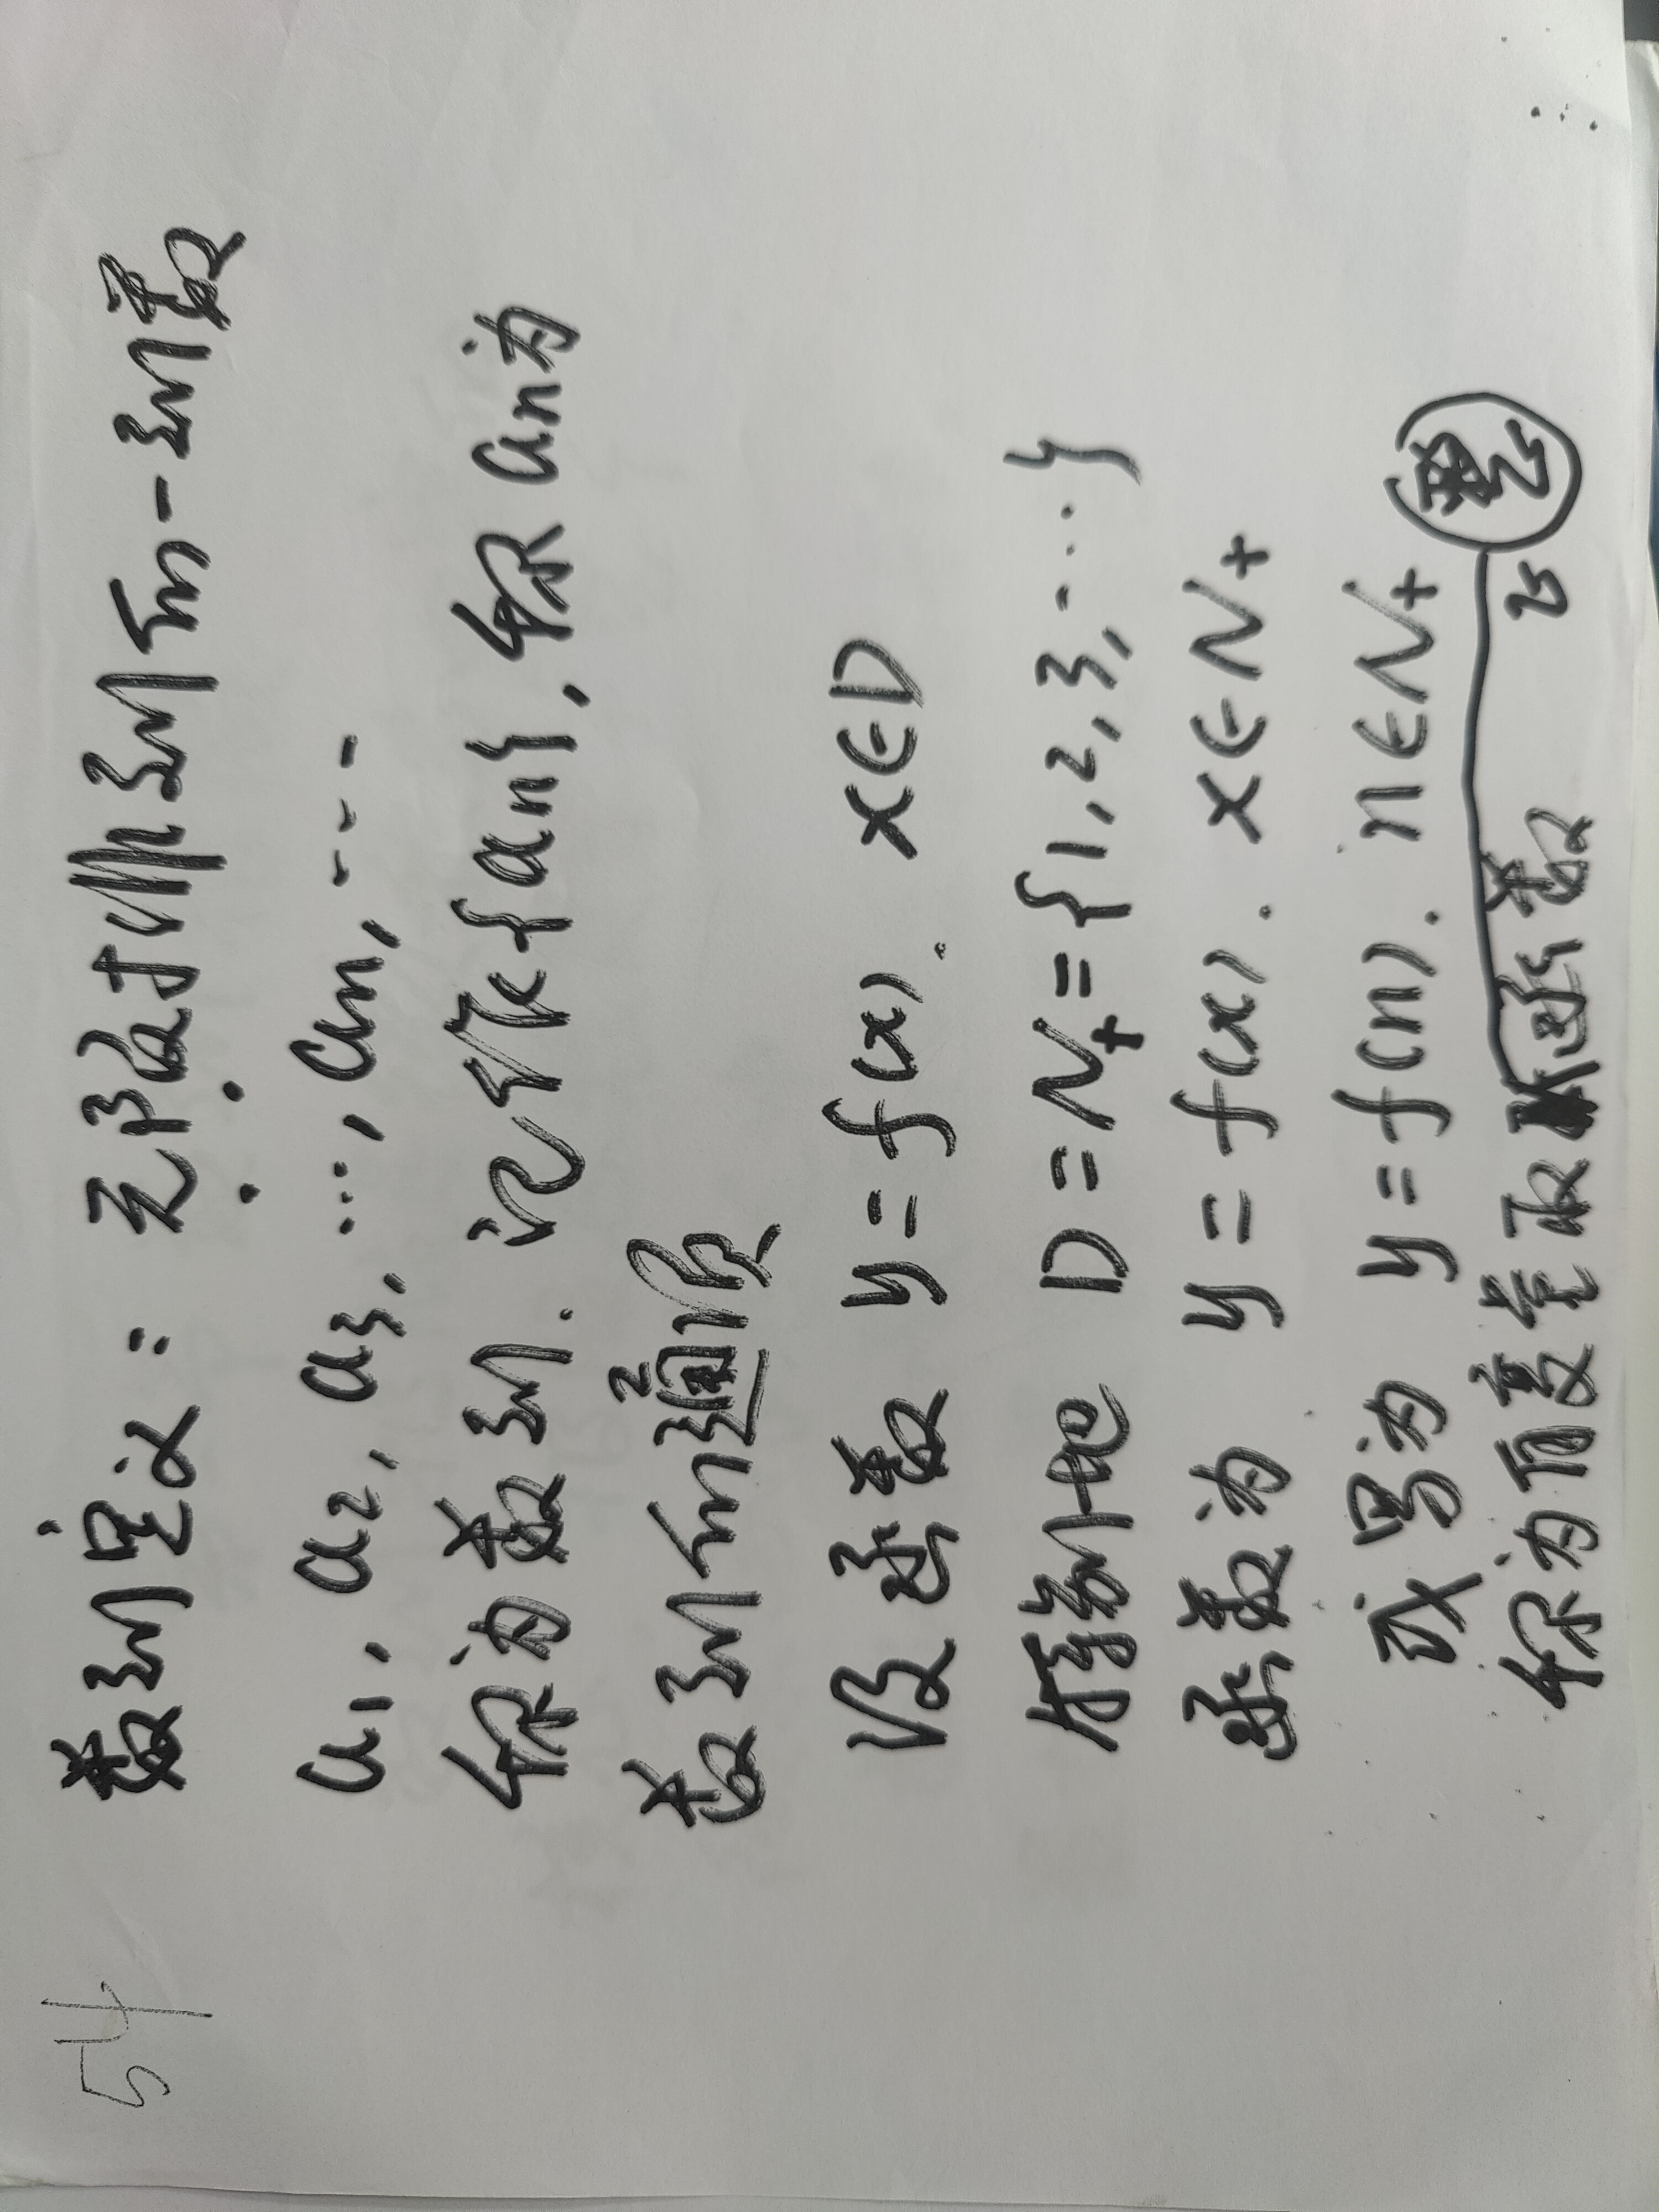 54
数列定义: 无穷多个排列的一列数
a1, a2, a3, …, an, …
称为数列. 记作{an}, 称an为
数列的通项
设函数 y=f(x). x∈D
特别地 D=N+={1,2,3,…}
函数为 y=f(x). x∈N+
或写为 y=f(n). n∈N+
称为自变量取 函数